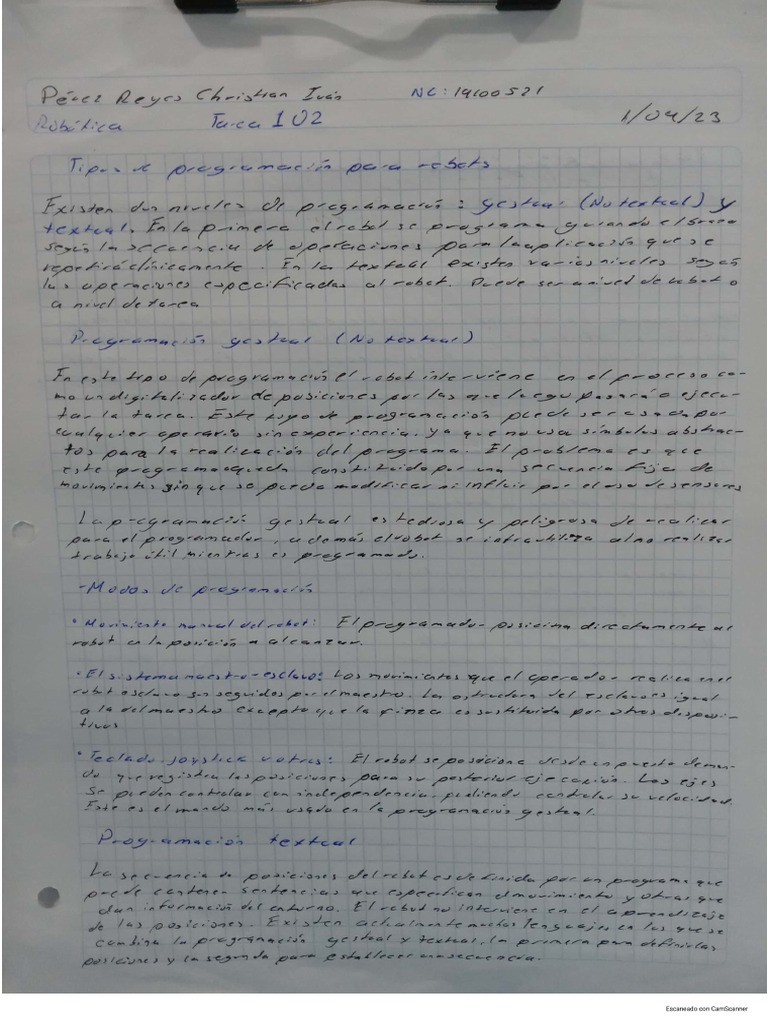 Pérez Reyes Christian Iván NC: 19100521
Robótica Tarea 102 1/04/23
Tipos de programación para robots
Existen dos niveles de programación: gestual (No textual) y
textual. En la primera el robot se programa guiando el brazo
según la secuencia de operaciones para la aplicación que se
repetirá clínicamente. En la textual existen varios niveles según
las operaciones especificadas al robot. Puede ser a nivel de robot o
a nivel de tarea
Programación gestual (No textual)
En este tipo de programación el robot interviene en el proceso co-
mo un digitalizador de posiciones por las que luego pasará a ejecu-
tar la tarea. Este tipo de programación puede ser usada por
cualquier operario sin experiencia, ya que no usa símbolos abstrac-
tos para la realización del programa. El problema es que
este programa queda constituido por una secuencia fija de
movimientos sin que se pueda modificar ni influir por el uso de sensores
La programación gestual es tediosa y peligrosa de realizar
para el programador, además el robot se infrautiliza al no realizar
trabajo útil mientras es programado.
-Modos de programación
• Movimiento manual del robot: El programador posiciona directamente al
robot en la posición a alcanzar.
• El sistema maestro-esclavo: Los movimientos que el operador realiza en el
robot esclavo son seguidos por el maestro. La estructura del esclavo es igual
a la del maestro excepto que la pinza es sustituida por otros disposi-
tivos
• Teclado, joystick u otros: El robot se posiciona desde un puesto de man-
do que registra las posiciones para su posterior ejecución. Los ejes
se pueden controlar con independencia, pudiendo controlar su velocidad.
Este es el mando más usado en la programación gestual.
Programación textual
La secuencia de posiciones del robot es definida por un programa que
puede contener sentencias que especifican el movimiento y otras que
dan información del entorno. El robot no interviene en el aprendizaje
de las posiciones. Existen actualmente muchos lenguajes en los que se
combina la programación gestual y textual, la primera para definir las
posiciones y la segunda para establecer una secuencia.
Escaneado con CamScanner